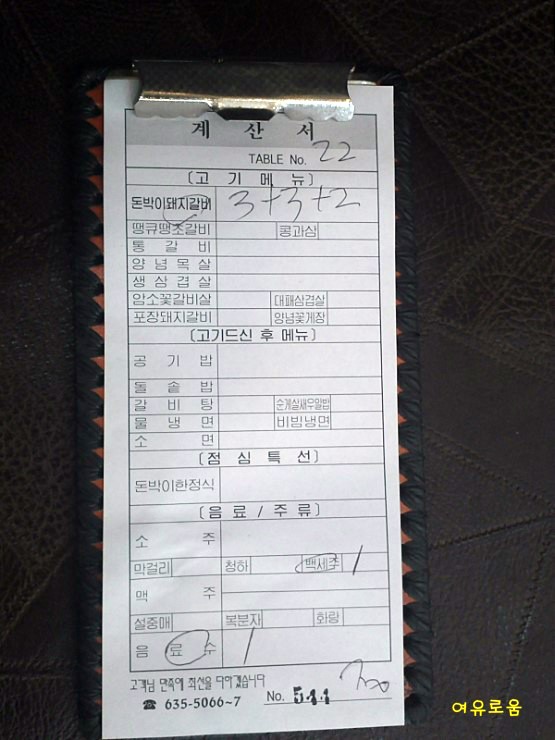 계 산 서
TABLE No. 22
(고 기 메 뉴)
돈박이돼지갈비 3+3+2
땡큐땡초갈비 콩과삼
통 갈 비
양 념 목 살
생 삼 겹 살
암소꽃갈비살 대패삼겹살
포장돼지갈비 양념꽃게장
(고기드신 후 메뉴)
공 기 밥
돌 솥 밥
갈 비 탕
물 냉 면 비빔냉면
소 면
(점 심 특 선)
돈박이한정식
(음 료 / 주 류)
소 주
막걸리 청하 백세주 1
맥 주
설중매 복분자 화랑
음 료 수 1
고객님 만족에 최선을 다하겠습니다
☎ 635-5066~7 No. 544
여유로움